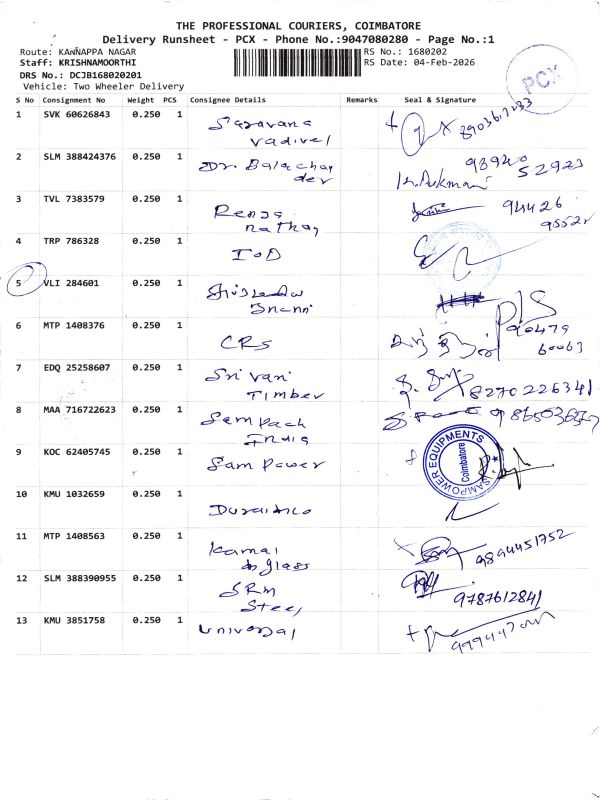 THE PROFESSIONAL COURIERS, COIMBATORE
Delivery Runsheet - PCX - Phone No.:9047080280 - Page No.:1
Route: KANNAPPA NAGAR
RS No.: 1680202
Staff: KRISHNAMOORTHI
RS Date: 04-Feb-2026
DRS No.: DCJB168020201
Vehicle: Two Wheeler Delivery
PCX
S No Consignment No Weight PCS Consignee Details Remarks Seal & Signature
1 SVK 60626843 0.250 1 Saravana
Vadivel
2 SLM 388424376 0.250 1 Dr. Balachan
der
98940
52923
3 TVL 7383579 0.250 1 Renga
nathan
94426
95524
4 TRP 786328 0.250 1 IOD
5 VLI 284601 0.250 1
6 MTP 1408376 0.250 1 CRS
90479
60063
7 EDQ 25258607 0.250 1 Sri Vari
Timber
8270226341
8 MAA 716722623 0.250 1 Sampach
India
9 KOC 62405745 0.250 1 Sam Power
SAMPOWER EQUIPMENTS
Coimbatore
10 KMU 1032659 0.250 1
11 MTP 1408563 0.250 1 Kamal
glass
9894451752
12 SLM 388390955 0.250 1 SRM
Steel
9787612841
13 KMU 3851758 0.250 1 Universal